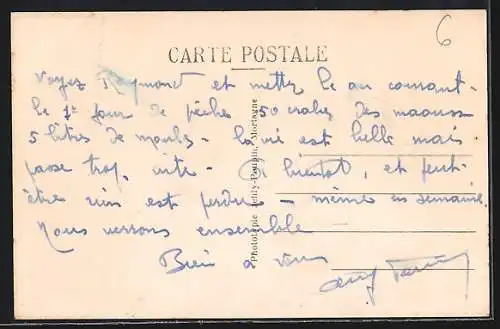 6
CARTE POSTALE
Voyez Raymond et mettez le au courant -
le 1er jour de pêche 50 crabes des maouss
5 litres de moules - la vie est belle mais
passe trop vite - A bientôt, et peut-
être rien est perdu - même en semaine
Nous verrons ensemble
Bien à vous
Phototypie Mortagne